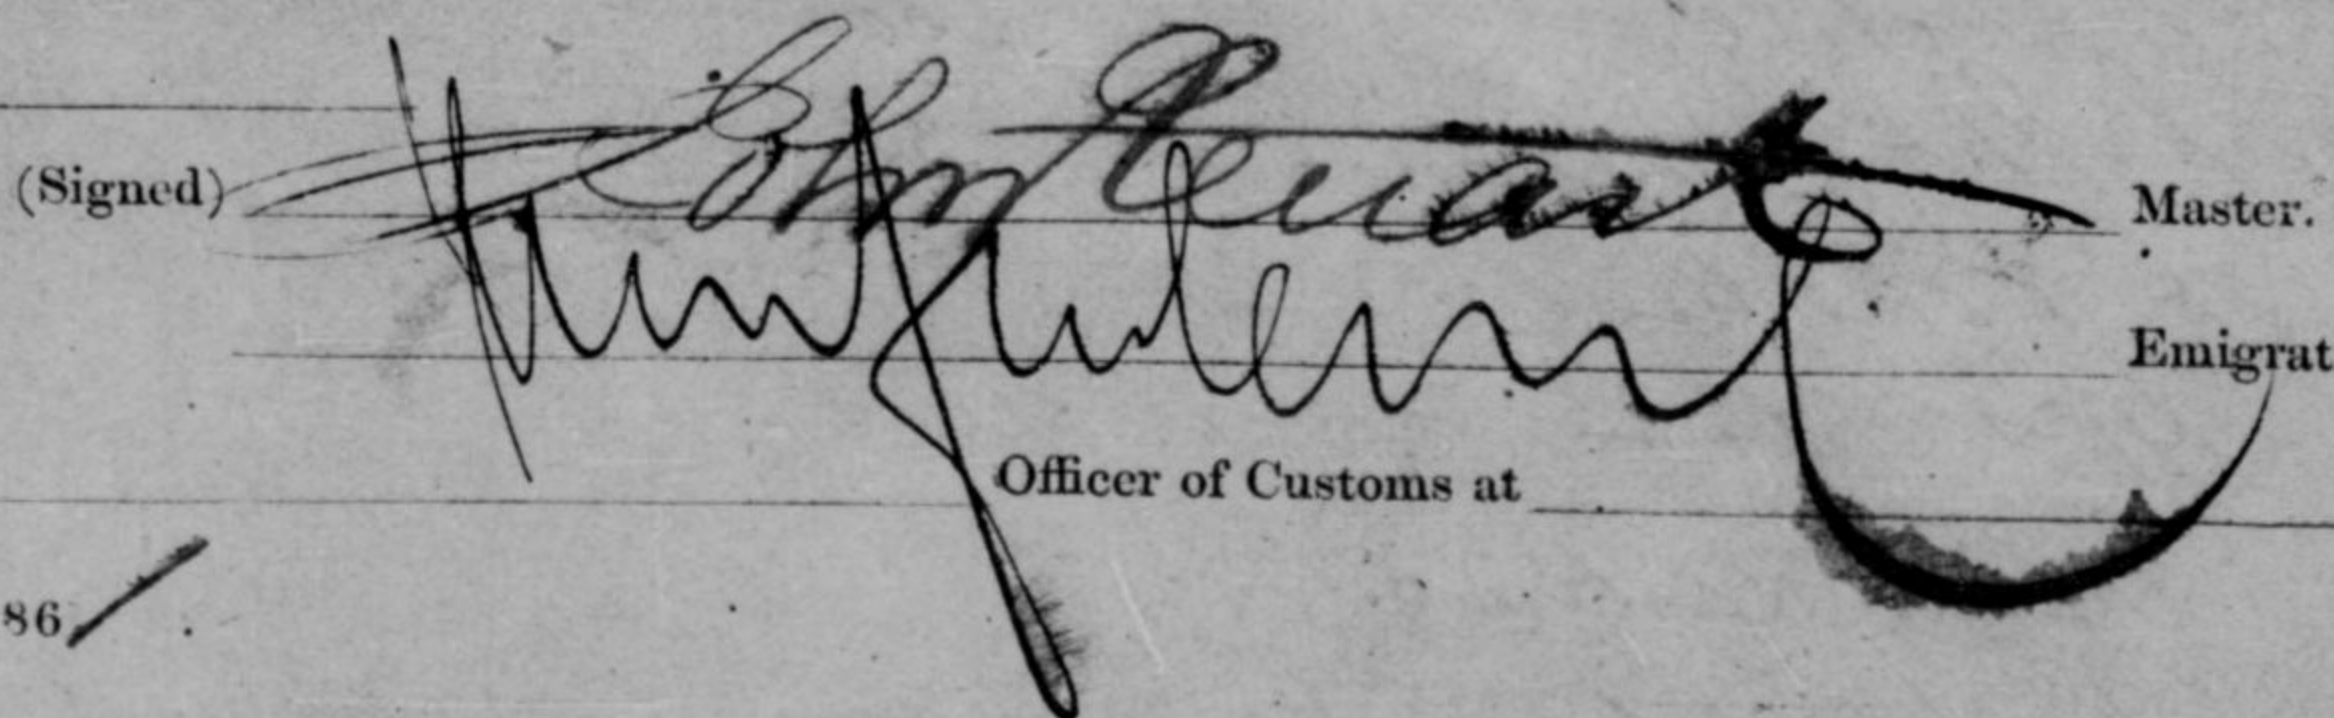 (Signed) John Stuart Master.
Emigrat
Officer of Customs at
86